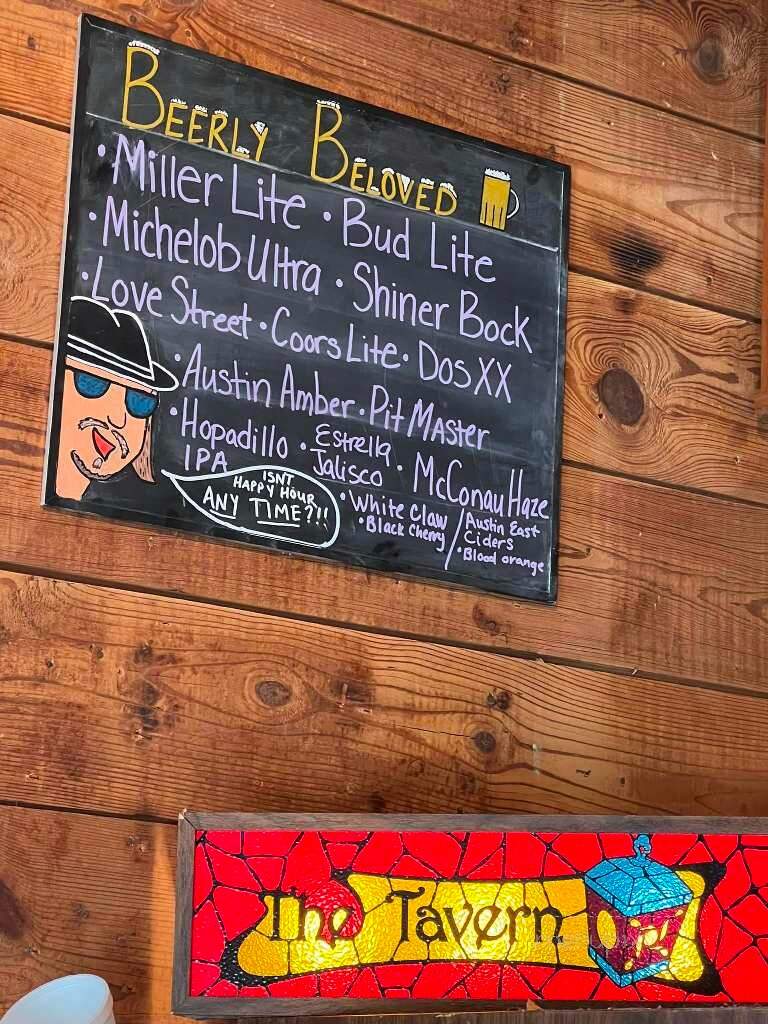 BEERLY BELOVED
• Miller Lite • Bud Lite
• Michelob Ultra • Shiner Bock
• Love Street • Coors Lite • Dos XX
• Austin Amber • Pit Master
• Hopadillo IPA • Estrella Jalisco • McConauHaze
ISNT
HAPPY HOUR
ANY TIME?!!
• White Claw
• Black Cherry
Austin East
Ciders
• Blood orange
The Tavern